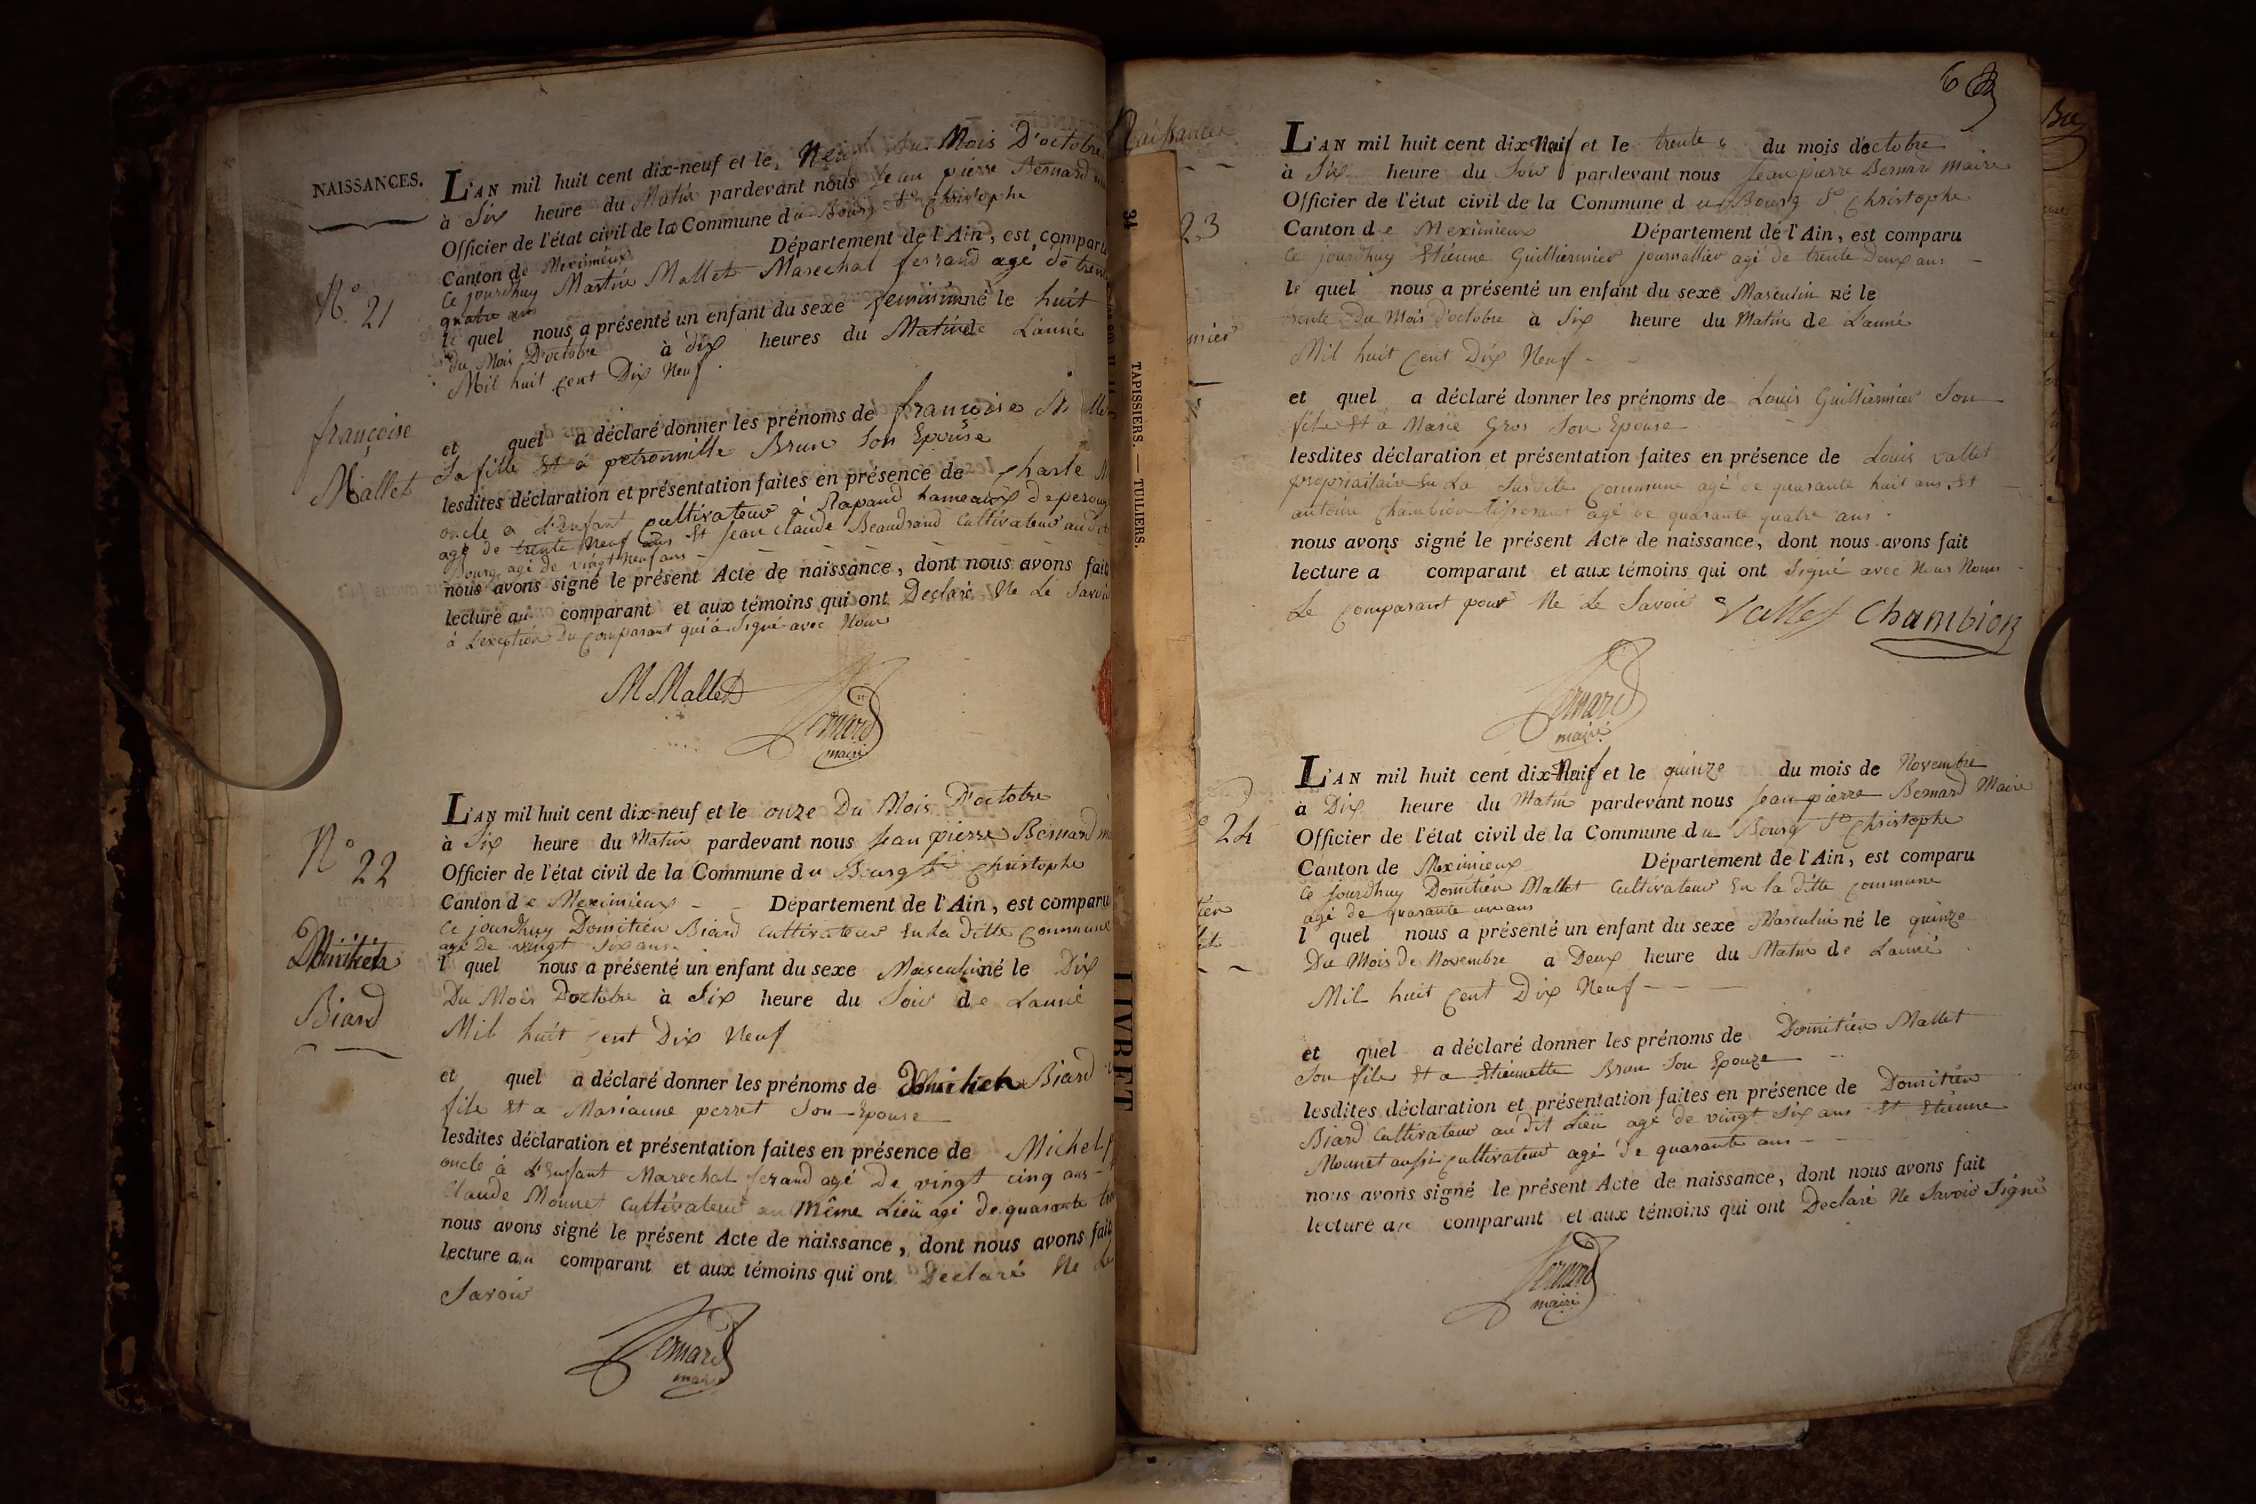 NAISSANCES.
N° 21
françoise
Mallet
L'AN mil huit cent dix-neuf et le, Neuf du Mois D'octobre
à Six heure du Matin pardevant nous Jean pierre Bernard
Officier de l'état civil de la Commune du Bourg St Christophe
Canton de Meximieux Département de l'Ain, est comparu
Ce jourdhuy Martin Mallet Marechal ferrand agé de trente
quatre ans
le quel nous a présenté un enfant du sexe feminin né le huit
du Mois D'octobre à dix heures du Matin de L'anné
Mil huit cent Dix Neuf.
et quel a déclaré donner les prénoms de françoise Mallet
Sa fille Et á petronnille Brun Son Epouse
lesdites déclaration et présentation faites en présence de Charle
oncle a L'Enfant cultivateur à Rapand hameaux de perouge
agé de trente Neuf ans Et Jean Claude Beaudrand Cultivateur au dit
Bourg agé de vingt Neuf ans
nous avons signé le présent Acte de naissance, dont nous avons fait
lecture au comparant et aux témoins qui ont Declaré Ne Le Savoir
à L'exception du Comparant qui à Signé avec Nous
M Mallet
Bernard
maire
N° 22
Domitien
Biard
L'AN mil huit cent dix-neuf et le onze Du Mois D'octobre
à Six heure du Matin pardevant nous Jean pierre Bernard
Officier de l'état civil de la Commune du Bourg St Christophe
Canton de Meximieux Département de l'Ain, est comparu
Ce jourdhuy Domitien Biard Cultivateur En la Ditte Commune
agé De vingt Six ans
l quel nous a présenté un enfant du sexe Masculin né le Dix
Du Mois Doctobre à Six heure du Soir de L'anné
Mil huit Cent Dix Neuf
et quel a déclaré donner les prénoms de Domitien Biard
file Et a Marianne perret Son Epouse
lesdites déclaration et présentation faites en présence de Michel
oncle à L'Enfant Marechal ferand agé De vingt cinq ans
Claude Monnet Cultivateur au Même Lieu agé de quarante
nous avons signé le présent Acte de naissance, dont nous avons fait
lecture au comparant et aux témoins qui ont Declaré Ne Le
Savoir
Bernard
maire
34
TAPISSIERS. — TUILIERS.
LIVRET
6
Naissances
23
L'AN mil huit cent dix Neuf et le trente du mois d'octobre
à Six heure du Soir pardevant nous Jean pierre Bernard Maire
Officier de l'état civil de la Commune du Bourg St Christophe
Canton de Meximieux Département de l'Ain, est comparu
Ce jourdhuy Etiénne Guilliermier journallier agé de trente Deux ans
le quel nous a présenté un enfant du sexe Masculin né le
trente Du Mois D'octobre à Six heure du Matin de L'anné
Mil huit Cent Dix Neuf
et quel a déclaré donner les prénoms de Louis Guilliermier Son
file Et à Marie Gros Son Epouse
lesdites déclaration et présentation faites en présence de Louis Vallet
propriaitaire En La Susdite Commune agé de quarante huit ans Et
antoine Chambion tisserant agé de quarante quatre ans.
nous avons signé le présent Acte de naissance, dont nous avons fait
lecture a comparant et aux témoins qui ont Signé avec Nous Nomes
Le Comparant pour Ne Le Savoir Vallet Chambion
Bernard
maire
24
L'AN mil huit cent dix-Neuf et le quinze du mois de Novembre
à Dix heure du Matin pardevant nous Jean pierre Bernard Maire
Officier de l'état civil de la Commune du Bourg St Christophe
Canton de Meximieux Département de l'Ain, est comparu
Ce jourdhuy Domitien Mallet Cultivateur En la ditte Commune
agé de quarante un ans
l quel nous a présenté un enfant du sexe Masculin né le quinze
Du Mois De Novembre a Deux heure du Matin de L'anné
Mil huit Cent Dix Neuf
et quel a déclaré donner les prénoms de Domitien Mallet
Son file Et a Etiennette Brun Son Epouze
lesdites déclaration et présentation faites en présence de Domitien
Biard Cultivateur au dit Lieu agé de vingt Six ans Et Etienne
Monnet aussi Cultivateur agé de quarante ans
nous avons signé le présent Acte de naissance, dont nous avons fait
lecture au comparant et aux témoins qui ont Declaré Ne Savoir Signé
Bernard
maire